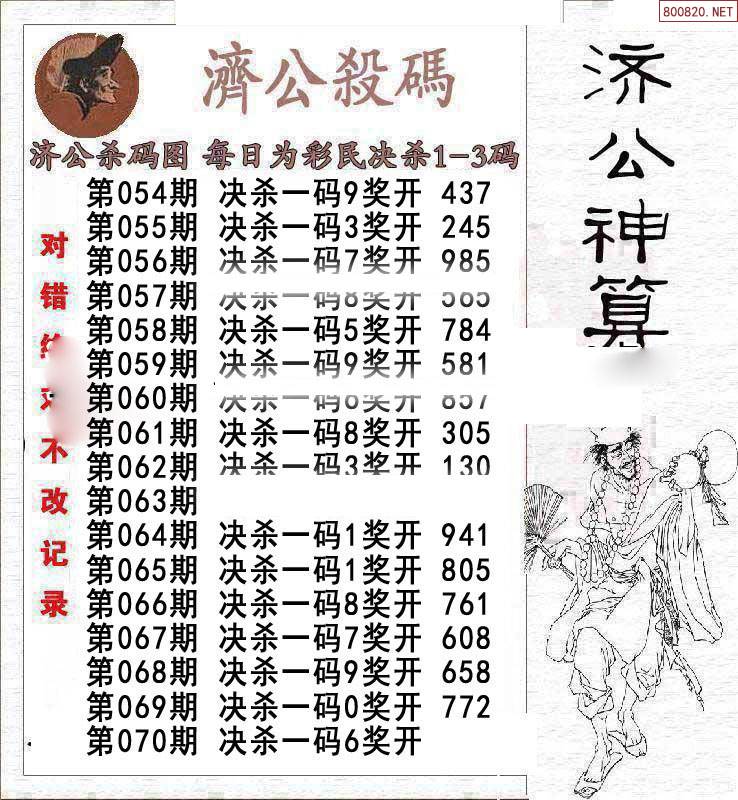 800820.NET
濟公殺碼
济公神算
济公杀码图 每日为彩民决杀1-3码
对错 不改记录
第054期 决杀一码9奖开 437
第055期 决杀一码3奖开 245
第056期 决杀一码7奖开 985
第057期 决杀一码8奖开 585
第058期 决杀一码5奖开 784
第059期 决杀一码9奖开 581
第060期 决杀一码 奖开 857
第061期 决杀一码8奖开 305
第062期 决杀一码3奖开 130
第063期
第064期 决杀一码1奖开 941
第065期 决杀一码1奖开 805
第066期 决杀一码8奖开 761
第067期 决杀一码7奖开 608
第068期 决杀一码9奖开 658
第069期 决杀一码0奖开 772
第070期 决杀一码6奖开